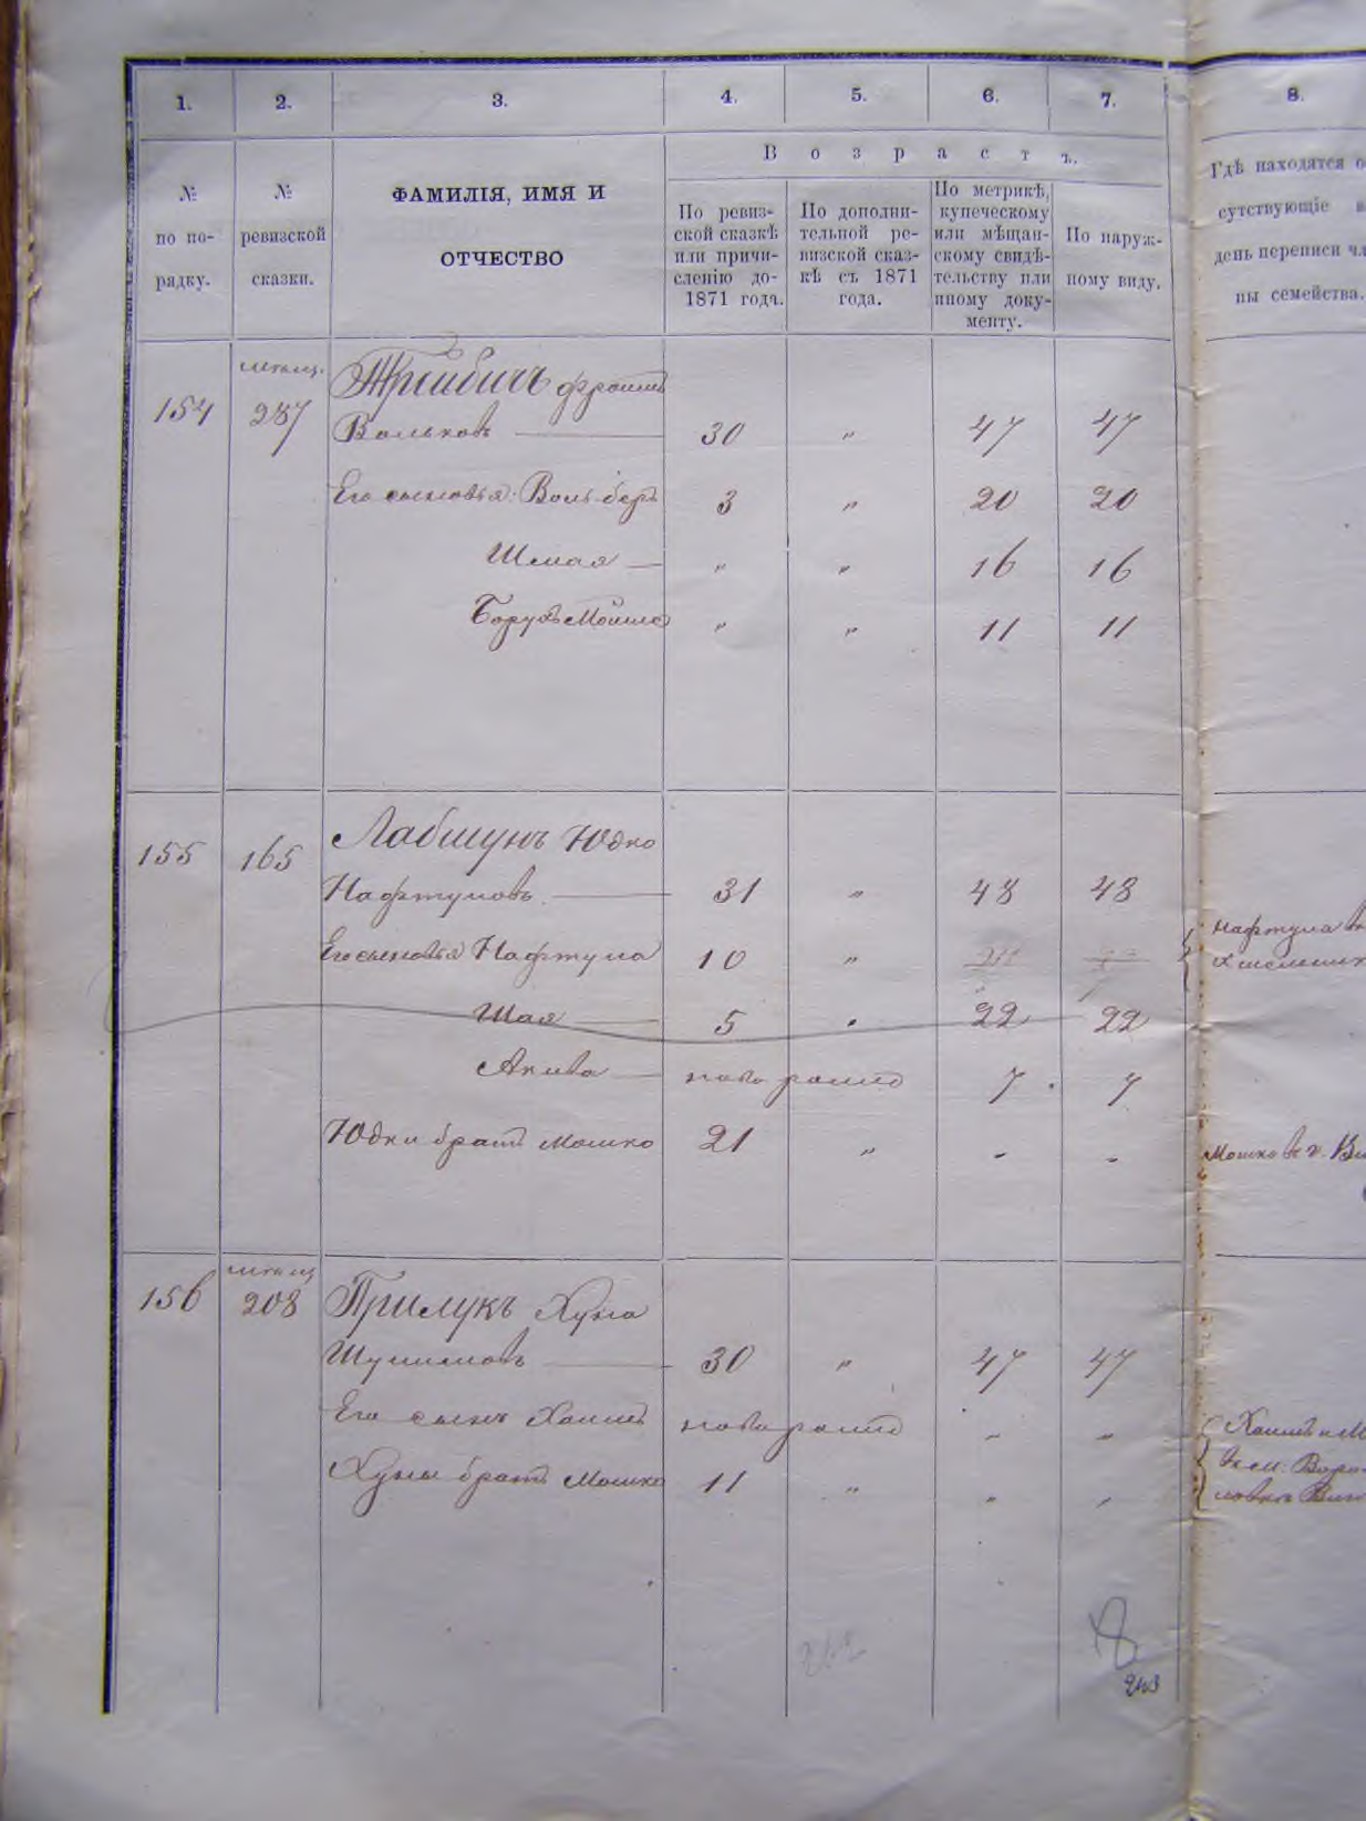 1. 2. 3. 4. 5. 6. 7. 8.
В о з р а с т ъ.
№ по по- рядку.
№ ревизской сказки.
ФАМИЛІЯ, ИМЯ И
ОТЧЕСТВО
По ревиз-
ской сказкѣ
или причи-
сленію до-
1871 года.
По дополни-
тельной ре-
визской сказ-
кѣ съ 1871
года.
По метрикѣ,
купеческому
или мѣщан-
скому свидѣ-
тельству или
иному доку-
менту.
По наруж-
ному виду.
Гдѣ находятся о
сутствующіе в
день переписи чл
ны семейства.
154 287 Фроимъ
Вольковъ 30 " 47 47
Его сыновья: Воль-беръ 3 " 20 20
Шмая " " 16 16
Борухъ Мошко " " 11 11
155 165 Лабшунъ Юдко
Нафтуловъ 31 " 48 48
Его сыновья Нафтула 10 "
Нафтула въ
Шая 5 " 22 22
Акива новорожд 7 7
Юдки братъ Мошко 21 " - -
Мошко въ г.
156 208 Прилукъ Хуна
Шулимовъ 30 " 47 47
Его сынъ Хаимъ новорожд - -
Хаимъ и М
Хуны братъ Мошко 11 " " "
262
243